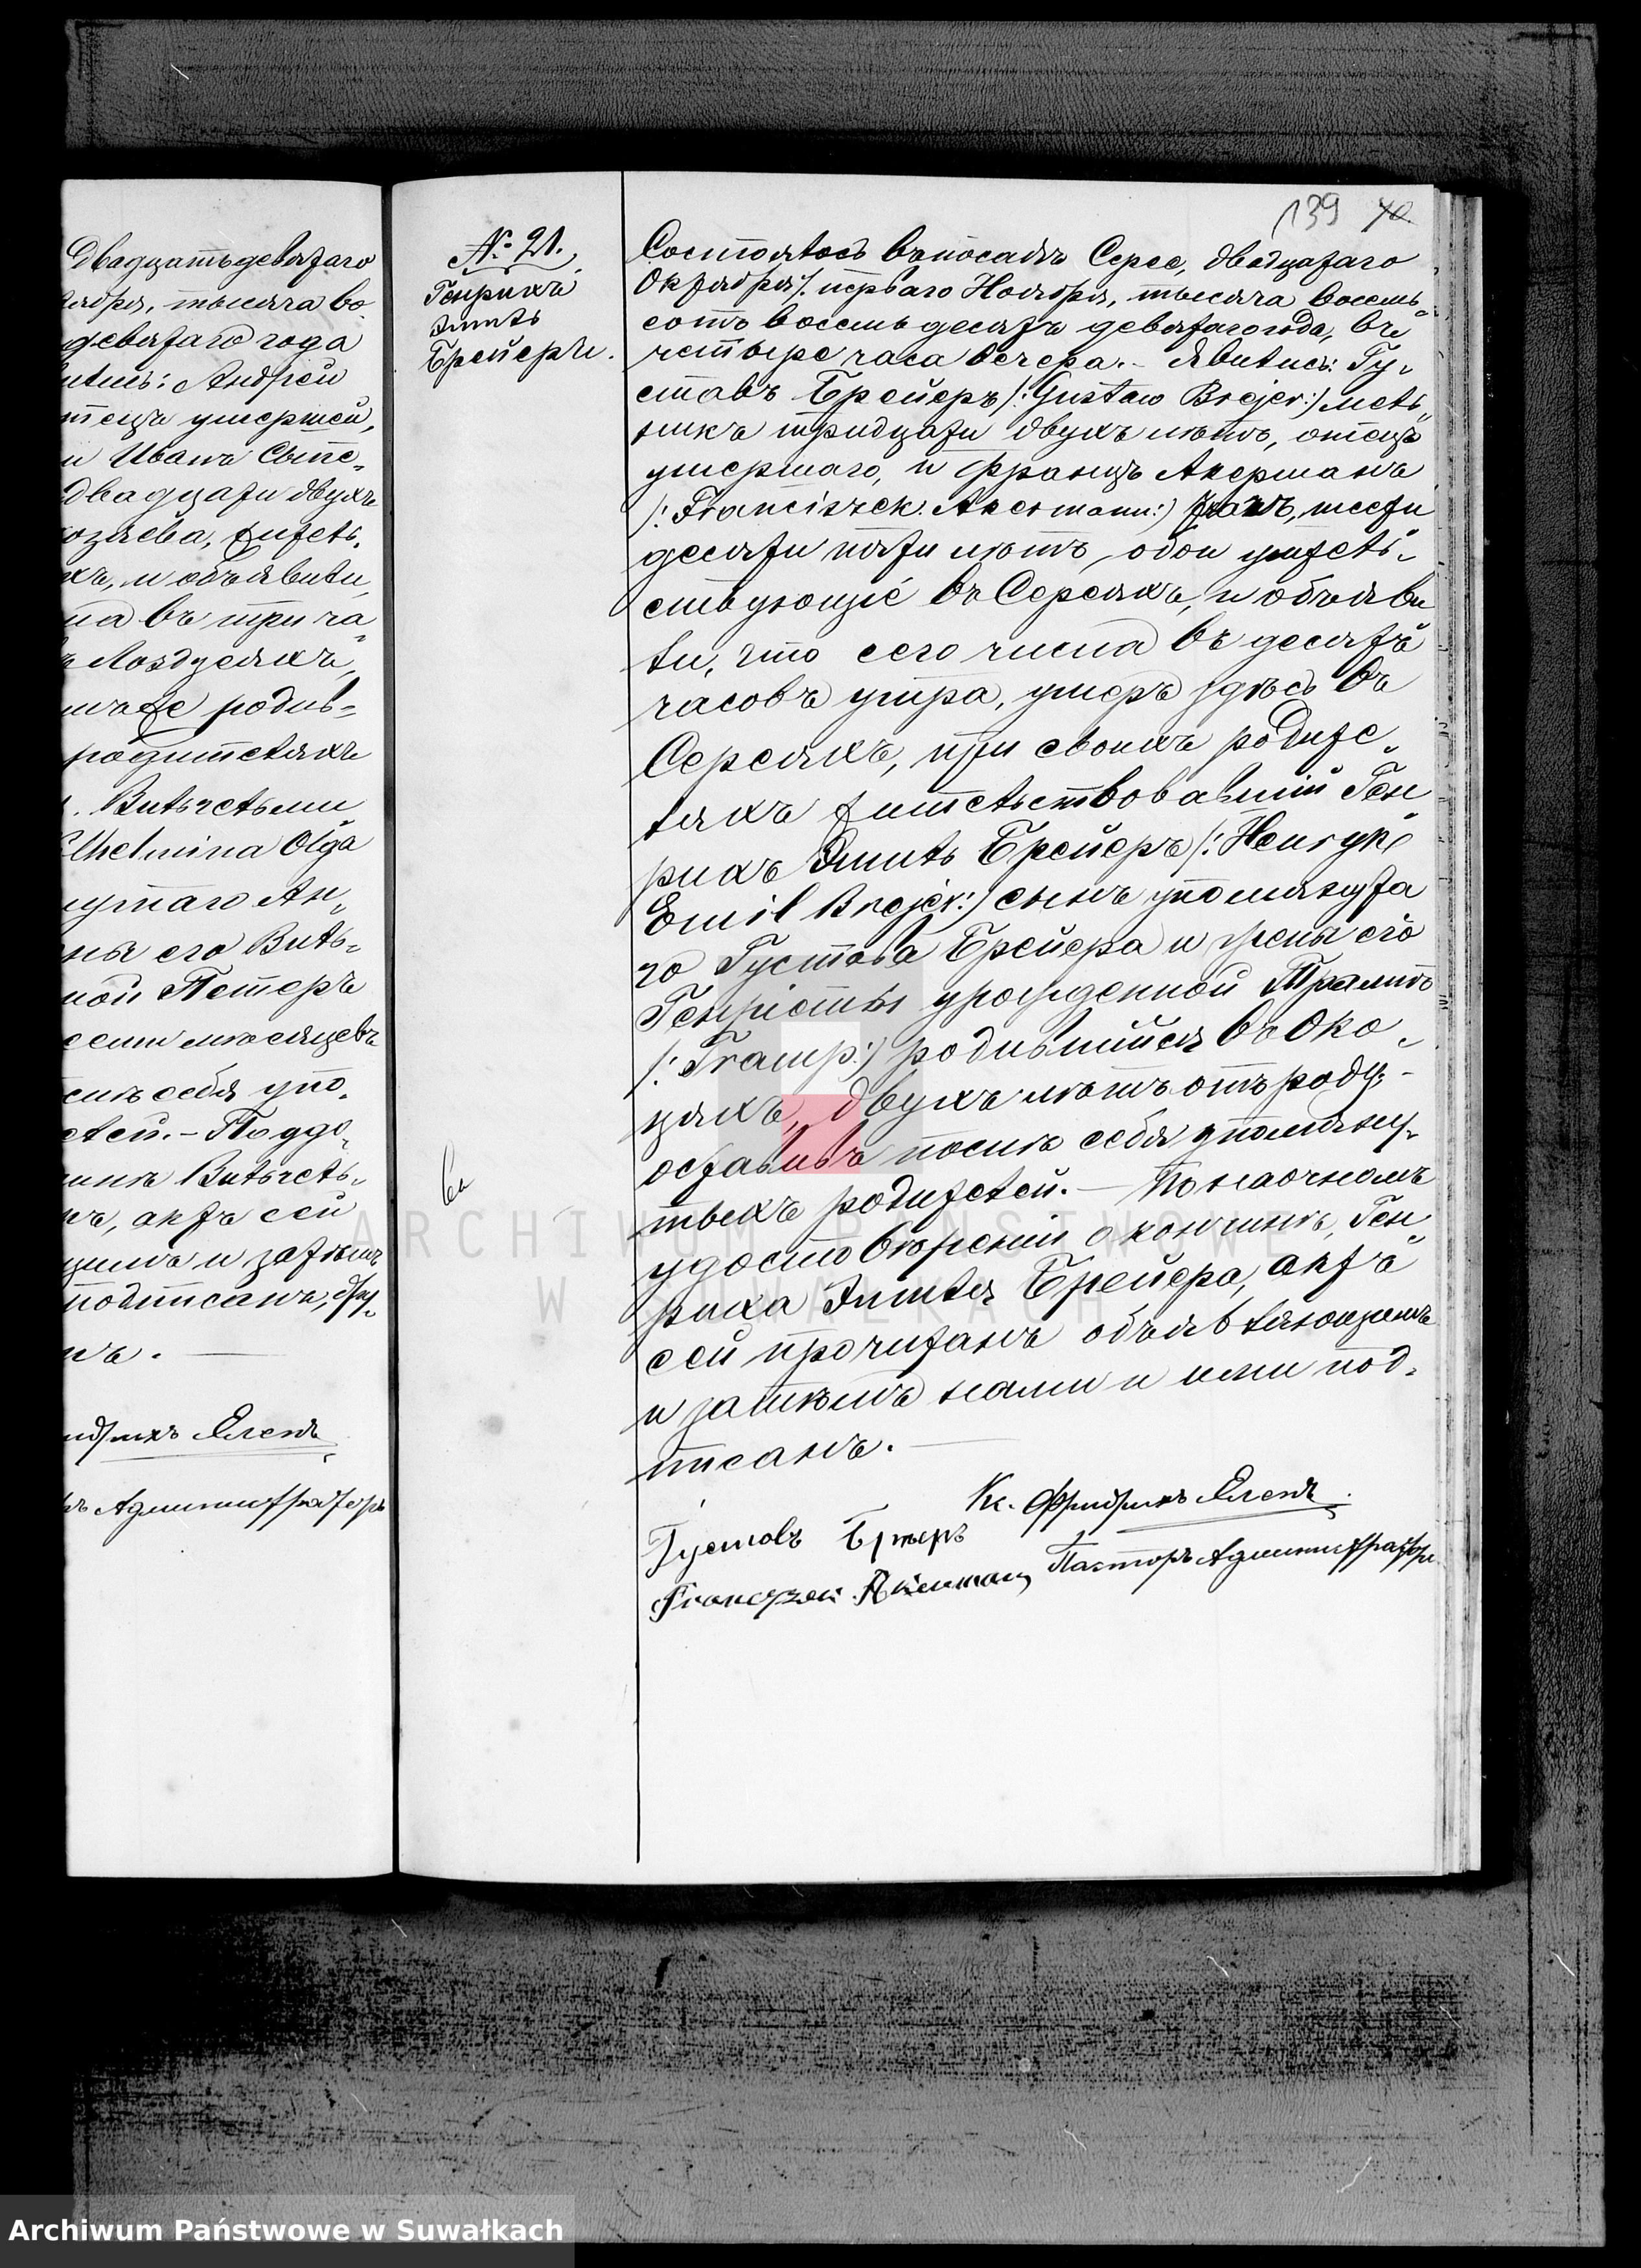 139 40
двадцатьдевятаго
ября, тысяча во
девятаго года
вились: Андрей
отецъ умершей,
и Иванъ Сыпе-
двадцати двухъ
хозяева, жтель-
хъ, и объявили,
сла въ три ча-
Лоздзеяхъ,
родив-
родителяхъ
. Вильчельми
lhelmina Olga
нутаго Ан-
ны его Виль-
ной Петеръ
семи мѣсяцевъ
слѣ себя упо-
телей. - По удо-
Вильгель-
нъ, актъ сей
щимъ и затѣмъ
подписанъ,
нъ.
идрихъ Еленъ
ръ Администраторъ
№ 21.
Генрихъ
Эмиль
Брейеръ.
Состоялось въ посадѣ Серее, двадцатаго
Октября /. перваго Ноября, тысяча восемь-
сотъ восемьдесятъ девятаго года, въ
четыре часа вечера. - Явились: Гу-
ставъ Брейеръ /:Gustaw Brejer:/ мель-
никъ тридцати двухъ лѣтъ, отецъ
умершаго, и Францъ Акерманъ
/:Franciszek Akermann:/ ткачъ, шести
десяти пяти лѣтъ, обои житель-
ствующіе въ Сереяхъ, и объяви
ли, что сего числа въ десять
часовъ утра, умеръ здѣсь въ
Сереяхъ, при своихъ родите-
ляхъ жительствовавшій Ген
рихъ Эмиль Брейеръ /:Henryk
Emil Brejer:/ сынъ упомянута
го Густава Брейера и жены его
Генріеты урожденной Трампъ
/:Tramp:/ родившійся въ Око-
цяхъ, двухъ лѣтъ отъ роду, -
оставивъ послѣ себя упомяну-
тыхъ родителей. - По наочномъ
удостовѣреніи о кончинѣ, Ген
риха Эмиля Брейера, актъ
сей прочитанъ объявляющимъ
и затѣмъ нами и ими под-
писанъ.
Кс. Фридрихъ Еленъ
Густавъ Бреэръ
Пасторъ Администраторъ
Franczek Akermann
ARCHIWUM PAŃSTWOWE
W SUWAŁKACH
Archiwum Państwowe w Suwałkach